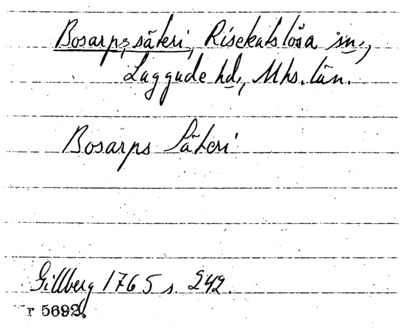 Bosarps säteri, Risekatslösa sn.,
Luggude hd., Mhs. län.
Bosarps Säteri
Gillberg 1765 s. 242.
r 5692.